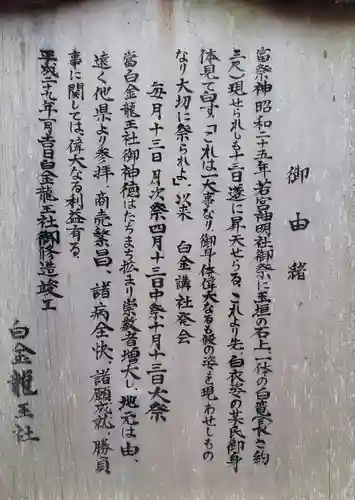 御由緒
富祭神昭和二十五年若宮神明社御祭に玉垣の石上、一体の白竜(長さ約
三尺)現せられしも十三日遂に昇天せらる。これより先、白衣姿の某氏御身
体見て曰す、「これは一大事なり、御身体偉大なる蛇の姿を現わせしもの
なり大切に祭られよ」、以来 白金講社発会
毎月十三日月次祭四月十三日中祭十月十三日大祭
當白金龍王社御神徳はたちまち拡まり崇敬者増大し、地元は由、
遠く他県より参拝、商売繁昌、諸病全快、諸願成就、勝負
事に関しては、偉大なる利益有る。
平成二十九年一月吉日白金龍王社御修造竣工
白金龍王社